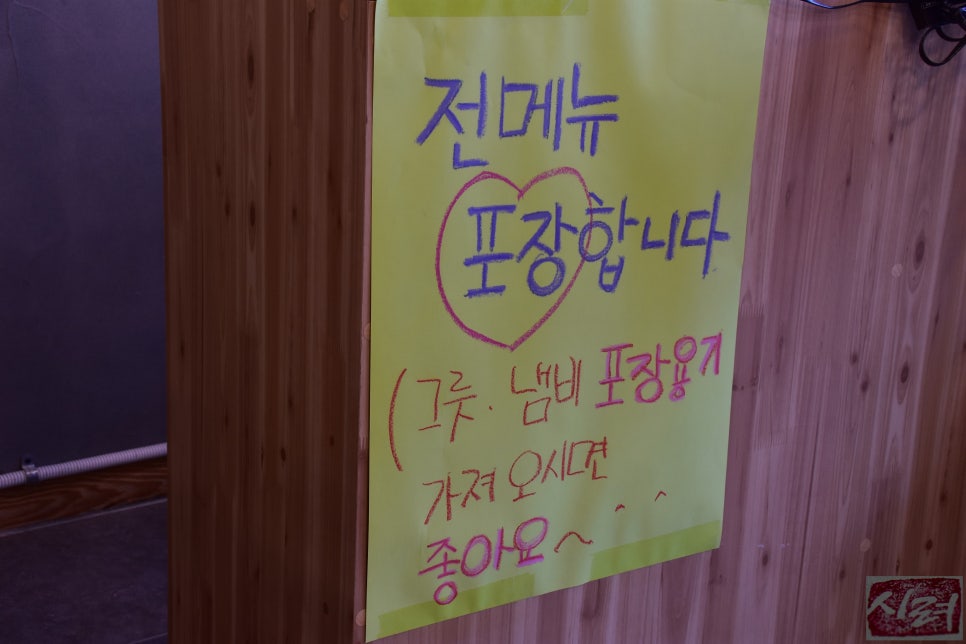 전메뉴
포장합니다
(그릇. 냄비 포장용기
가져 오시면
좋아요~ ^ ^
시려